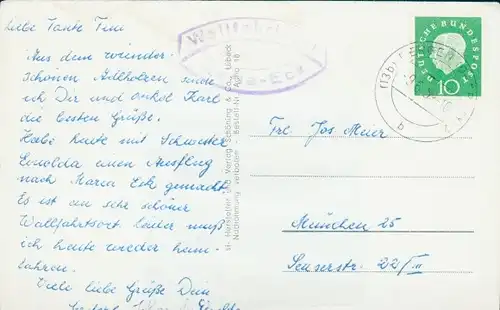 Liebe Tante Fini
Aus dem wunder-
schönen Adlholzen sende
ich Dir und Onkel Karl
die besten Grüße.
Habe heute mit Schwester
einen Ausflug
nach Maria Eck gemacht
Es ist ein sehr schöner
Wallfahrtsort leider muß
ich heute wieder heim-
fahren.
Viele liebe Grüße Dein
Wallfahrt
Eck
Herstellung und Verlag Schöning & Co., Lübeck
Nachahmung verboten
DEUTSCHE BUNDESPOST
10
(13b)
b
Frl. Jos Meier
München 25
22/II